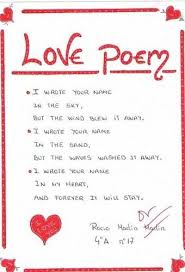 LOVE POEM
I WROTE YOUR NAME
IN THE SKY,
BUT THE WIND BLEW IT AWAY.
I WROTE YOUR NAME
IN THE SAND,
BUT THE WAVES WASHED IT AWAY.
I WROTE YOUR NAME
IN MY HEART,
AND FOREVER IT WILL STAY.
I LOVE
Rocio Madia
4ºA nº17